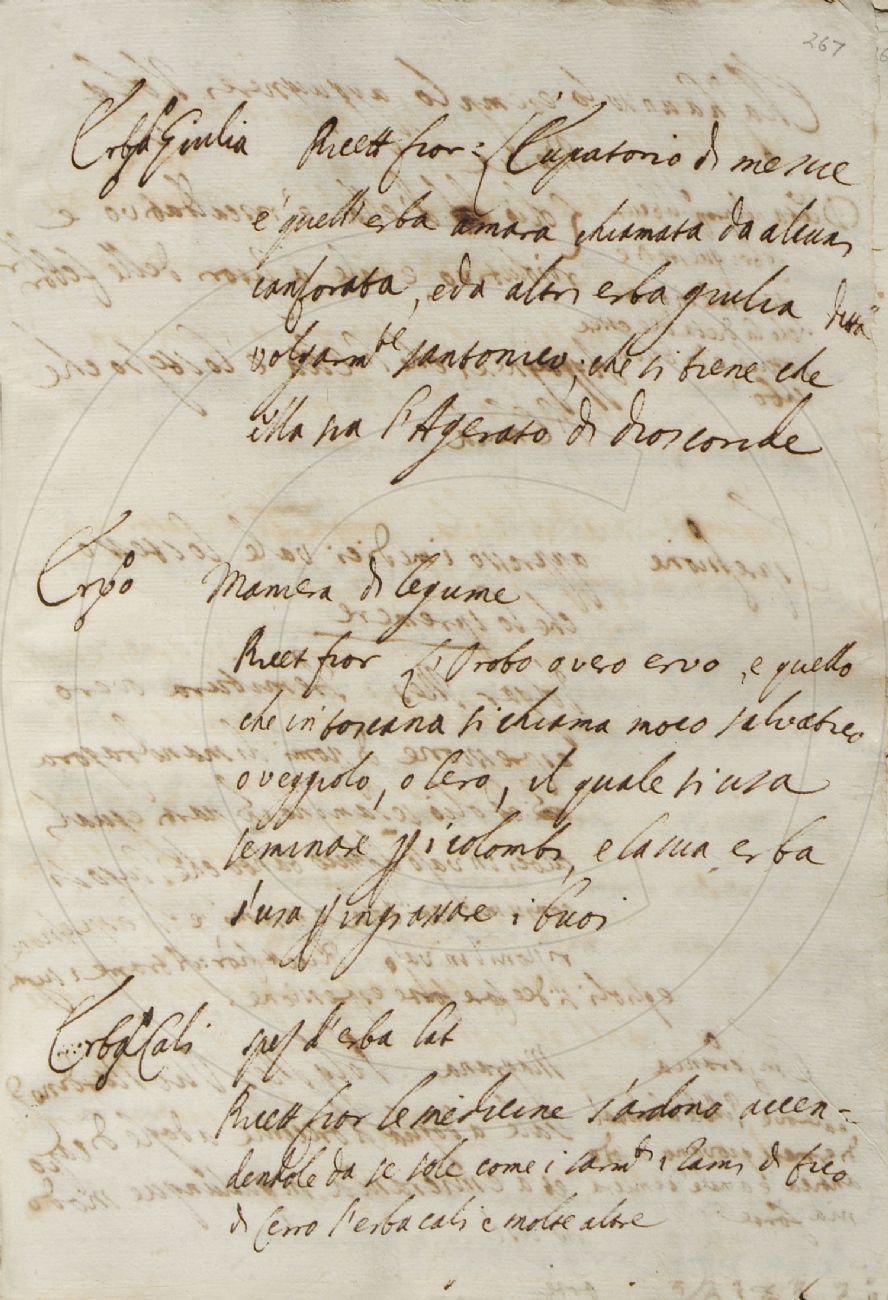 267
Erba Giulia Ricett fior: L'Eupatorio di mesue
è quell'erba amara chiamata da alcuni
canforata, e da altri erba giulia detta
volgarmte santonico, che si tiene che
ella sia l'Agerato di dioscoride
Ervo Maniera di legume
Ricet fior L'Orobo overo ervo, e quello
che in toscana si chiama moco salvatico
o veggiolo, o lero, il quale si usa
seminare p i colombi, e la sua erba
s'usa p ingrassare i buoi
Erba Cali spez d'erba lat
Ricett fior le medicine s'ardono accen-
dendole da se sole come i sarmti i rami di fico
di Cerro l'erba cali e molte altre